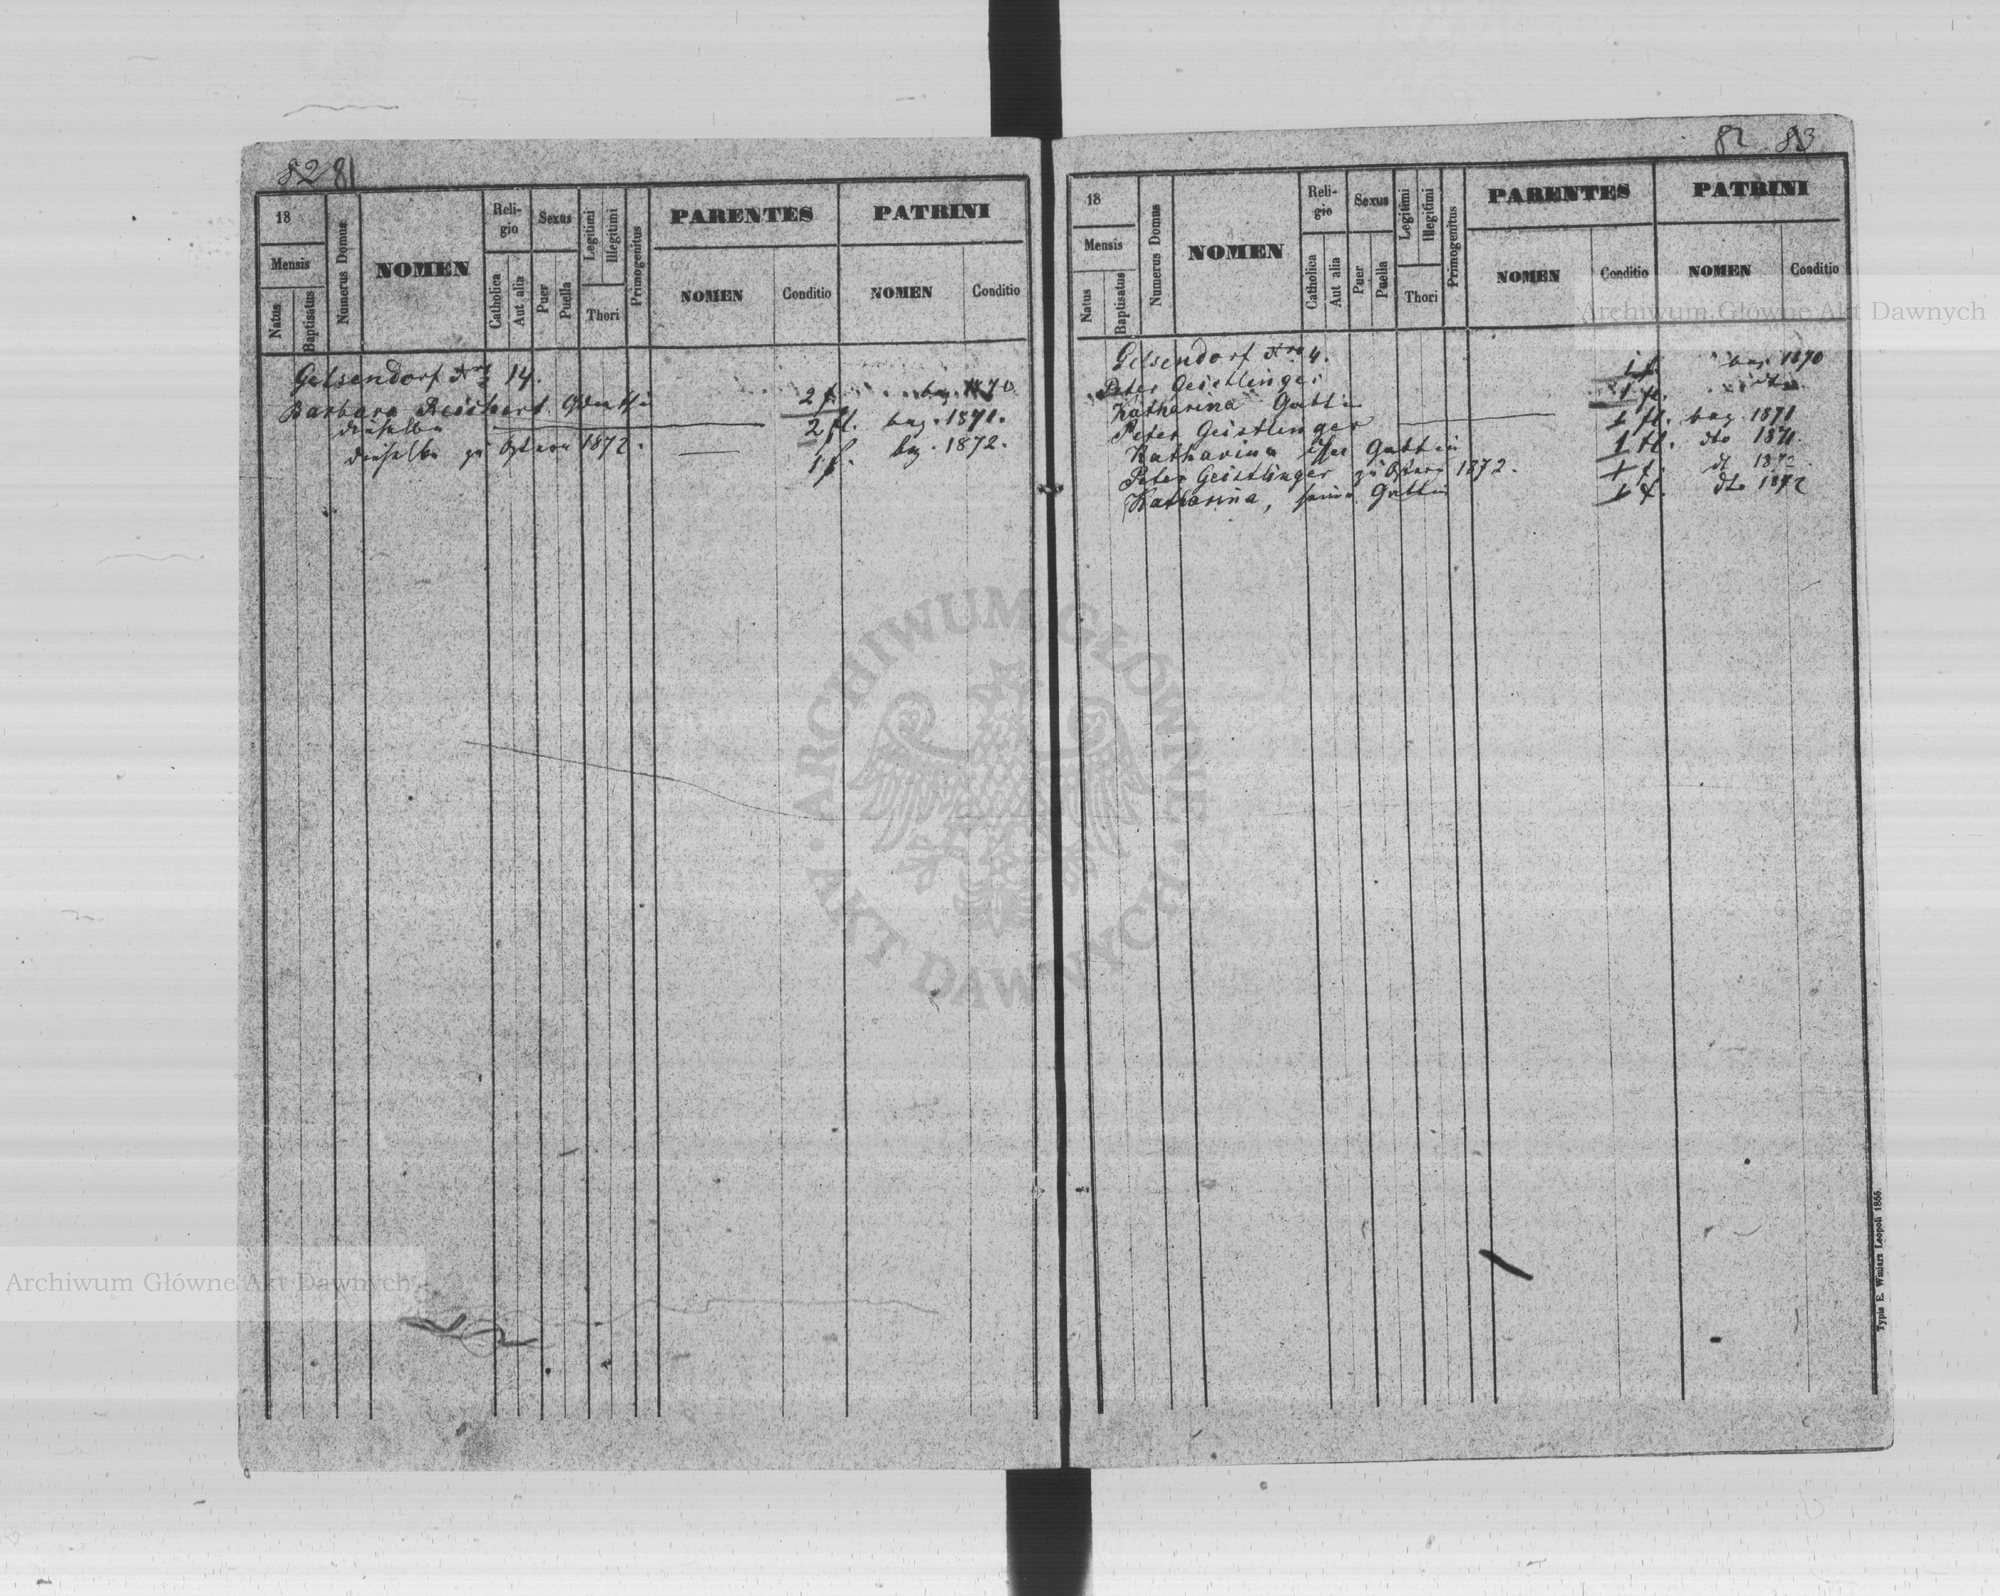 82 81
18
Mensis
Natus
Baptisatus
Numerus Domus
NOMEN
Reli-
gio
Catholica
Aut alia
Sexus
Puer
Puella
Legitimi
Illegitimi
Thori
Primogenitus
PARENTES
NOMEN
Conditio
PATRINI
NOMEN
Conditio
Gelsendorf Nro 14.
Barbara Reichert 2 f. bez. 1870
dieselbe 2 fl. bez. 1871.
dieselbe zu Ostern 1872. 1 f. bez. 1872.
82 83
18
Mensis
Natus
Baptisatus
Numerus Domus
NOMEN
Reli-
gio
Catholica
Aut alia
Sexus
Puer
Puella
Legitimi
Illegitimi
Thori
Primogenitus
PARENTES
NOMEN
Conditio
PATRINI
NOMEN
Conditio
Gelsendorf Nro 4.
Peter Geistlinger 1 f. bez. 1870
Katharina Gattin 1 fl. dto
Peter Geistlinger 1 fl. bez. 1871
Katharina Gattin 1 fl. dto 1871.
Peter Geistlinger zu Ostern 1872. 1 f. dt 1872
Katharina, seine Gattin 1 f. dto 1872
Typis E. Winiarz Leopoli 1866.
Archiwum Główne Akt Dawnych
Archiwum Główne Akt Dawnych
ARCHIWUM GŁÓWNE AKT DAWNYCH